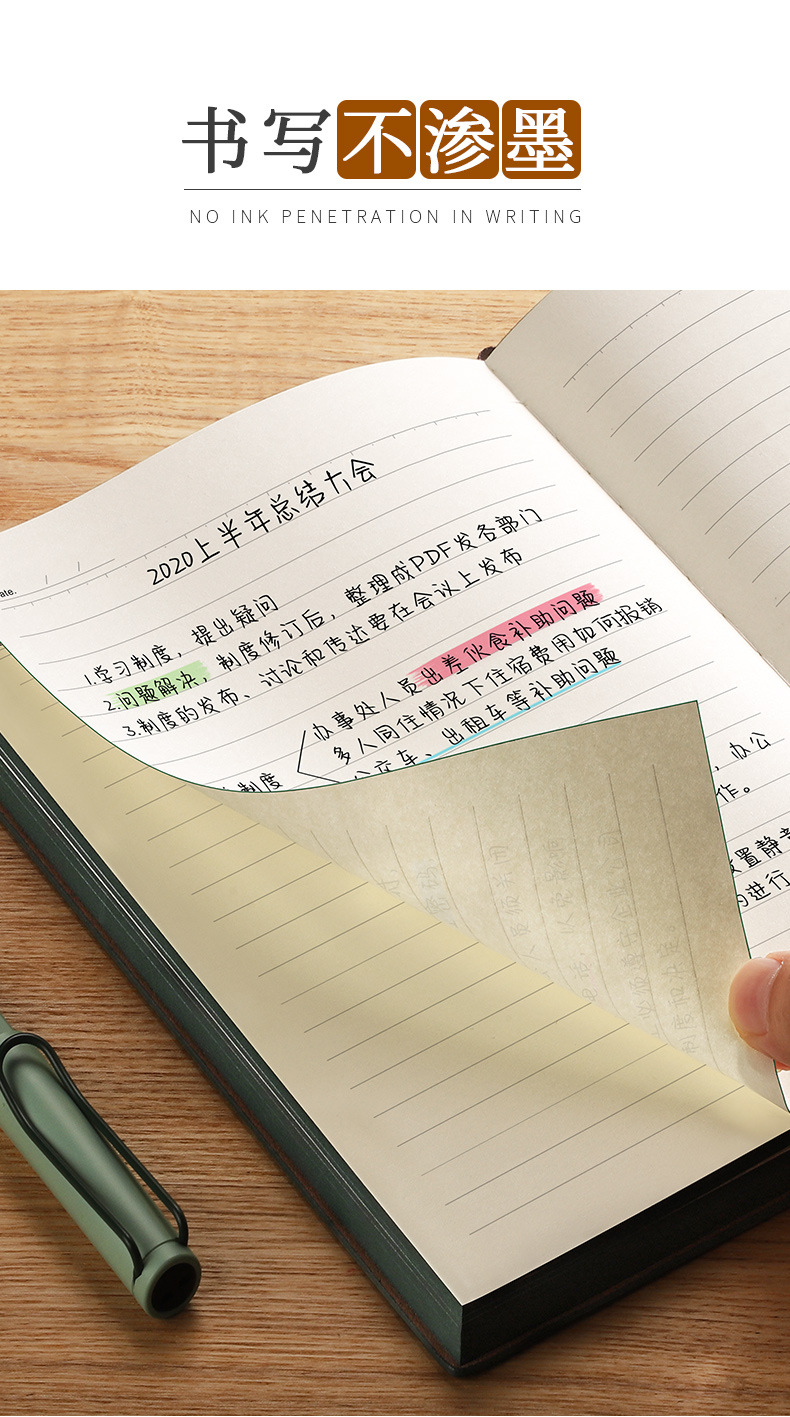 书写不渗墨
NO INK PENETRATION IN WRITING
ate. / /
2020上半年总结大会
1.学习制度，提出疑问
2.问题解决，制度修订后，整理成PDF发各部门
3.制度的发布、讨论和传达要在会议上发布
办事处人员出差伙食补助问题
多人同住情况下住宿费用如何报销
公交车、出租车等补助问题
制度
，办公
作。
置静
进行